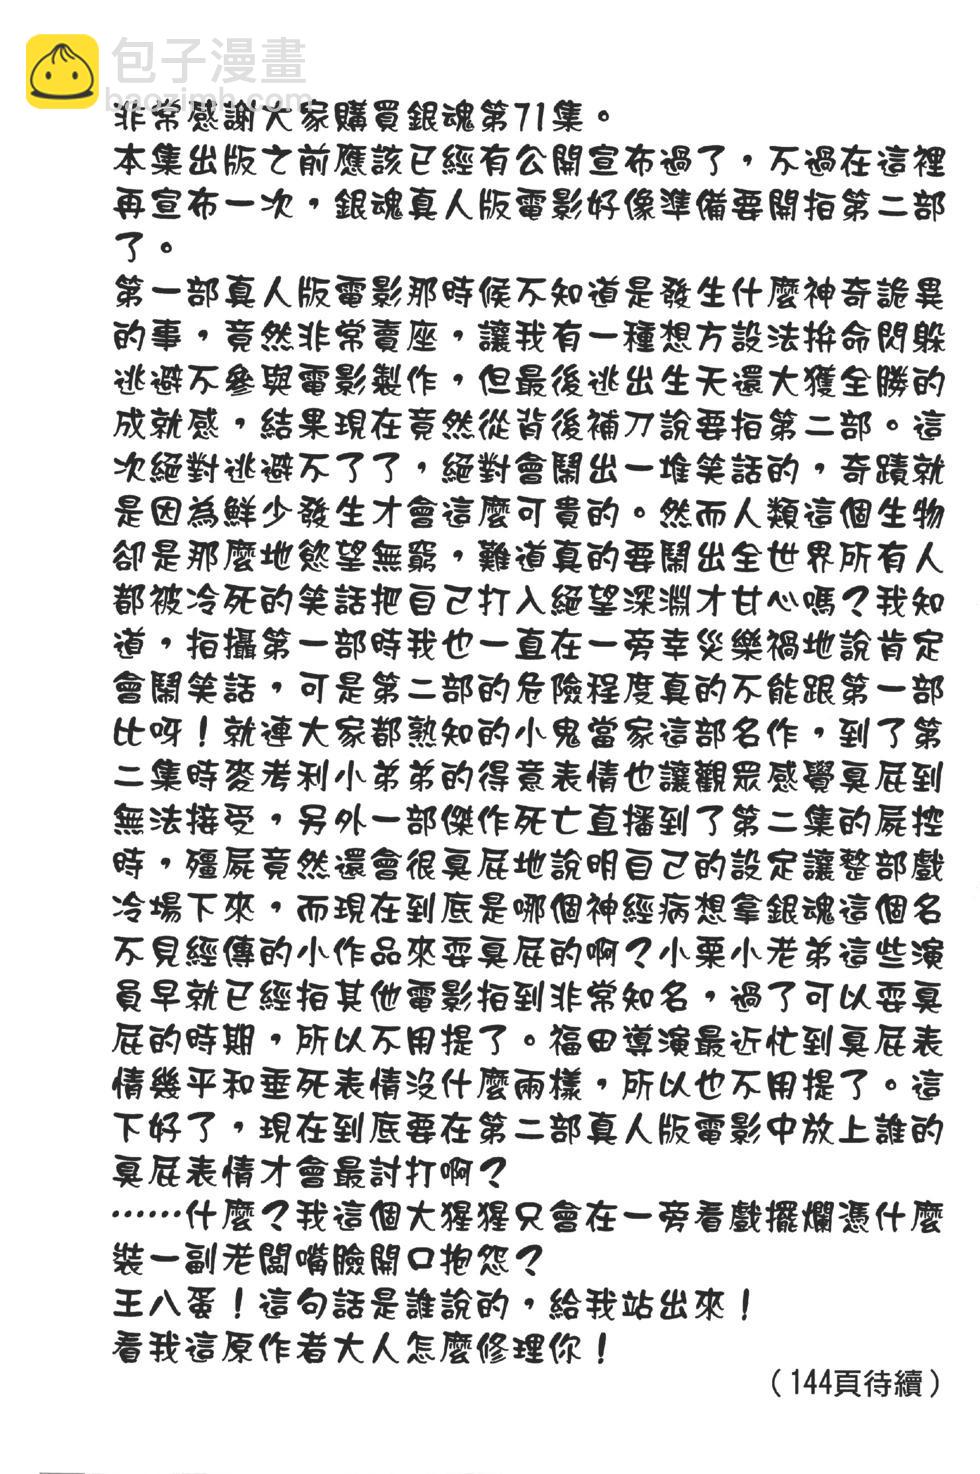 包子漫畫
baozimh.com
非常感謝大家購買銀魂第71集。
本集出版之前應該已經有公開宣布過了，不過在這裡
再宣布一次，銀魂真人版電影好像準備要開拍第二部
了。
第一部真人版電影那時候不知道是發生什麼神奇詭異
的事，竟然非常賣座，讓我有一種想方設法拚命閃躲
逃避不參與電影製作，但最後逃出生天還大獲全勝的
成就感，結果現在竟然從背後補刀說要拍第二部。這
次絕對逃避不了了，絕對會鬧出一堆笑話的，奇蹟就
是因為鮮少發生才會這麼可貴的。然而人類這個生物
卻是那麼地慾望無窮，難道真的要鬧出全世界所有人
都被冷死的笑話把自己打入絕望深淵才甘心嗎？我知
道，拍攝第一部時我也一直在一旁幸災樂禍地說肯定
會鬧笑話，可是第二部的危險程度真的不能跟第一部
比呀！就連大家都熟知的小鬼當家這部名作，到了第
二集時麥考利小弟弟的得意表情也讓觀眾感覺臭屁到
無法接受，另外一部傑作死亡直播到了第二集的屍控
時，殭屍竟然還會很臭屁地說明自己的設定讓整部戲
冷場下來，而現在到底是哪個神經病想拿銀魂這個名
不見經傳的小作品來耍臭屁的啊？小栗小老弟這些演
員早就已經拍其他電影拍到非常知名，過了可以耍臭
屁的時期，所以不用提了。福田導演最近忙到臭屁表
情幾乎和垂死表情沒什麼兩樣，所以也不用提了。這
下好了，現在到底要在第二部真人版電影中放上誰的
臭屁表情才會最討打啊？
⋯⋯什麼？我這個大猩猩只會在一旁看戲擺爛憑什麼
裝一副老闆嘴臉開口抱怨？
王八蛋！這句話是誰說的，給我站出來！
看我這原作者大人怎麼修理你！
（144頁待續）